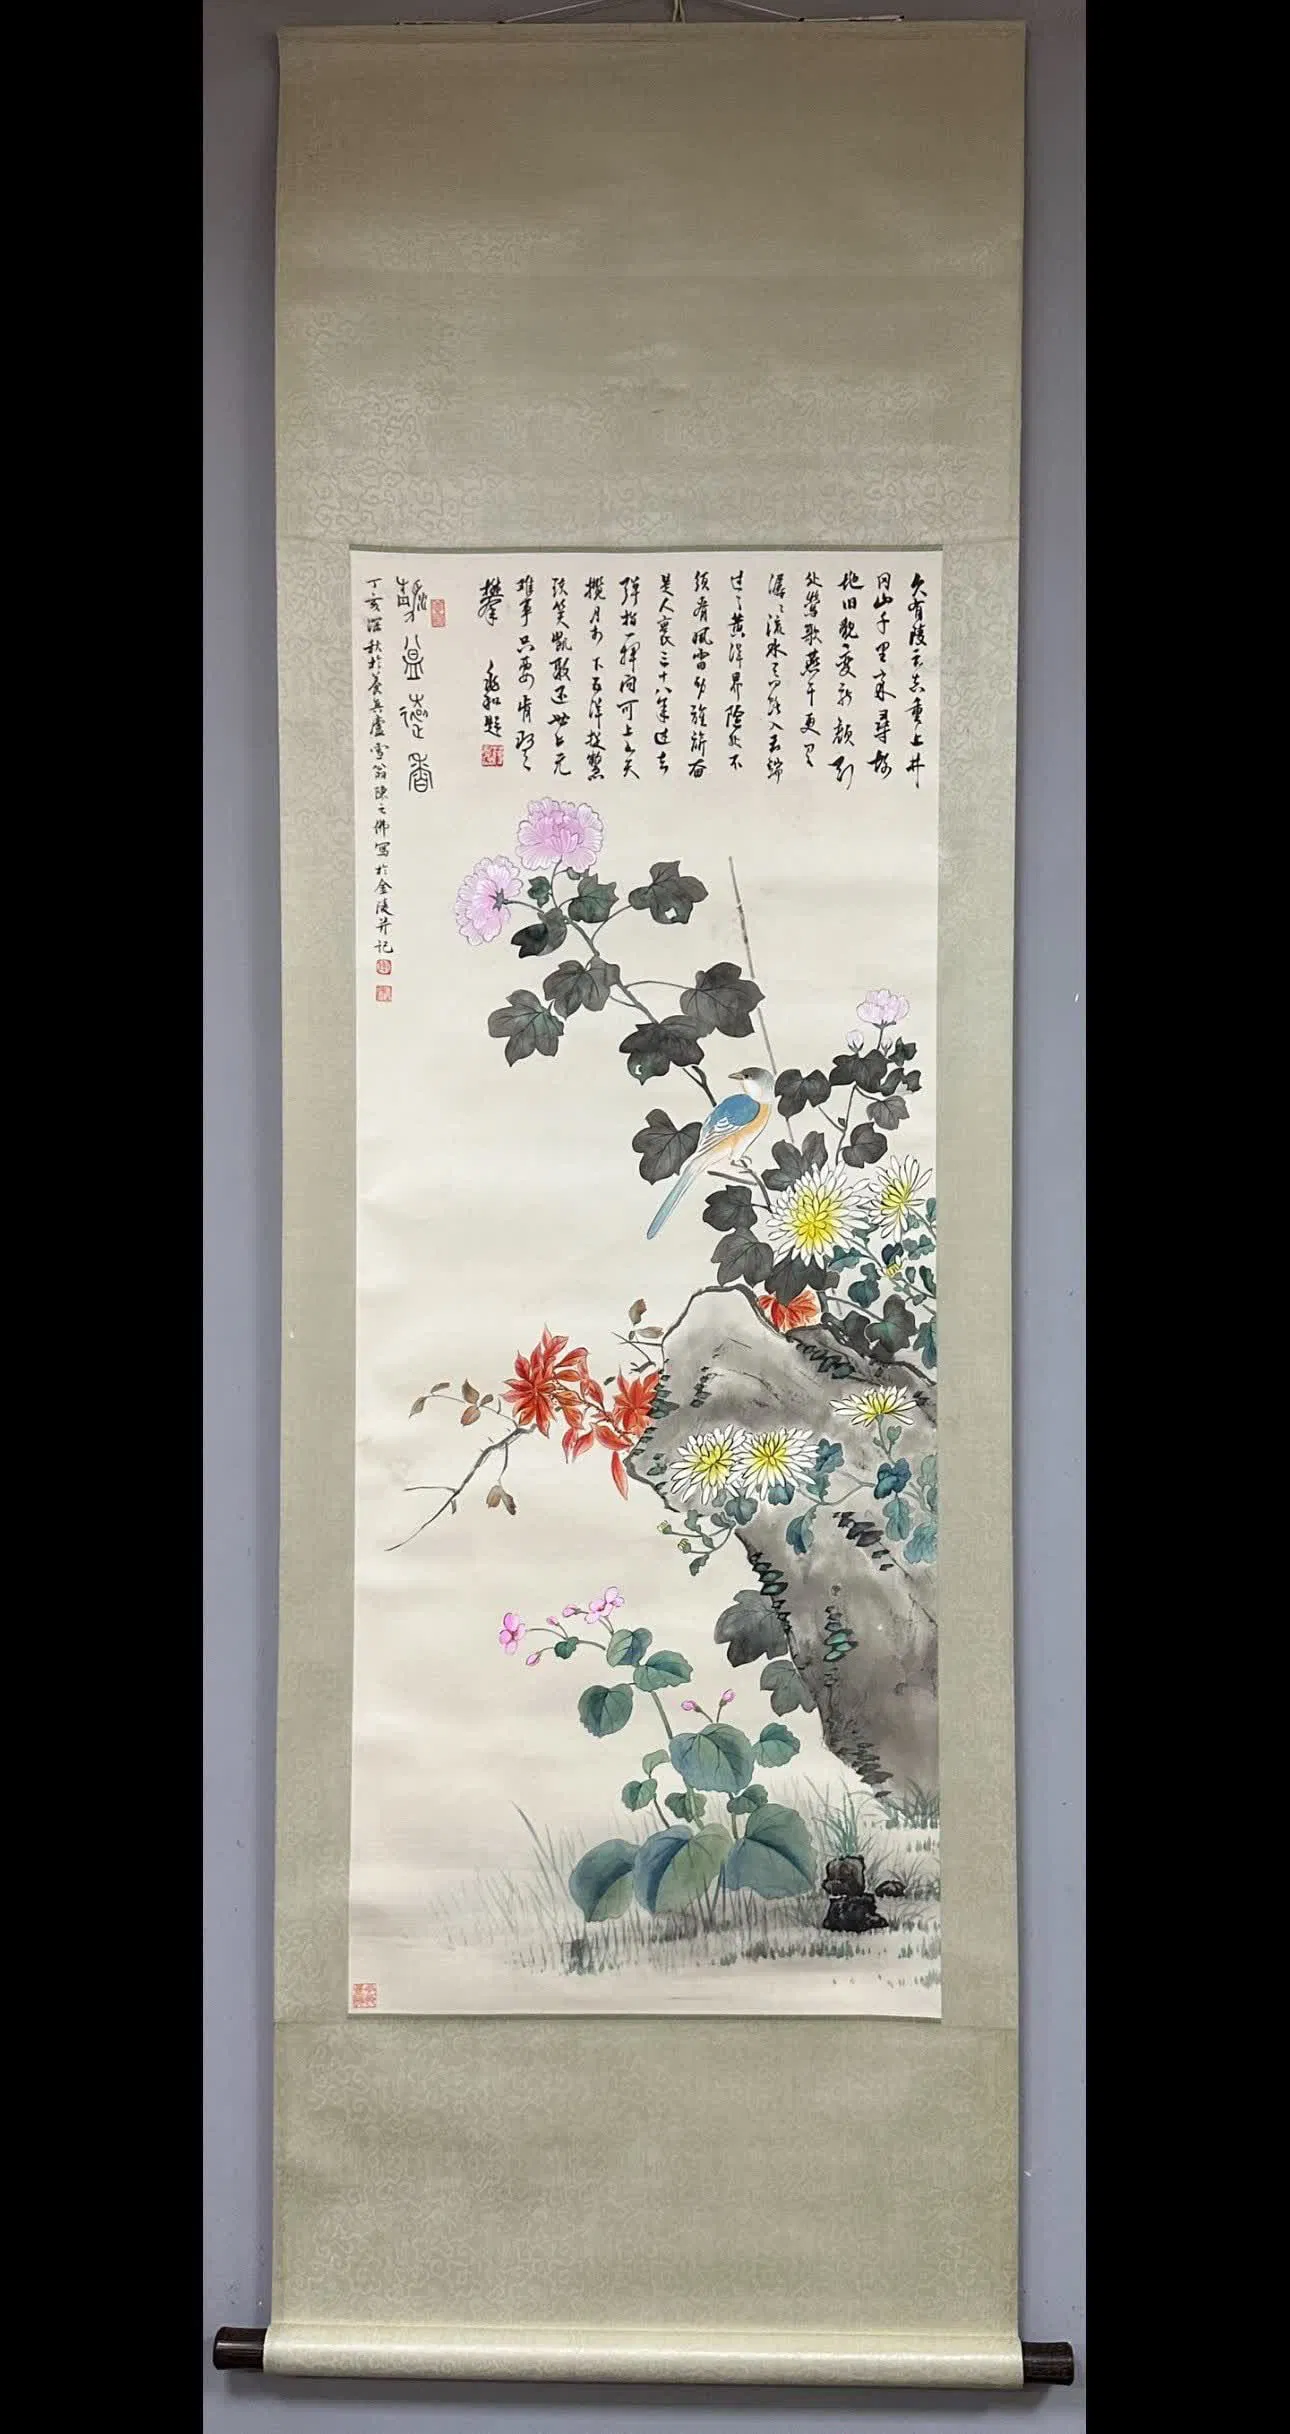 久有凌云志重上井
冈山千里来寻故
地旧貌变新颜到
处莺歌燕午更有
潺々流水高路入云端
过了黄洋界险处不
须看风雷动旌旗奋
是人寰三十八年过去
弹指一挥间可上九天
揽月可下五洋捉鳖
谈笑凯歌还世上无
难事只要肯登
攀
丁亥深秋於养真庐雪翁陈之佛写於金陵并记